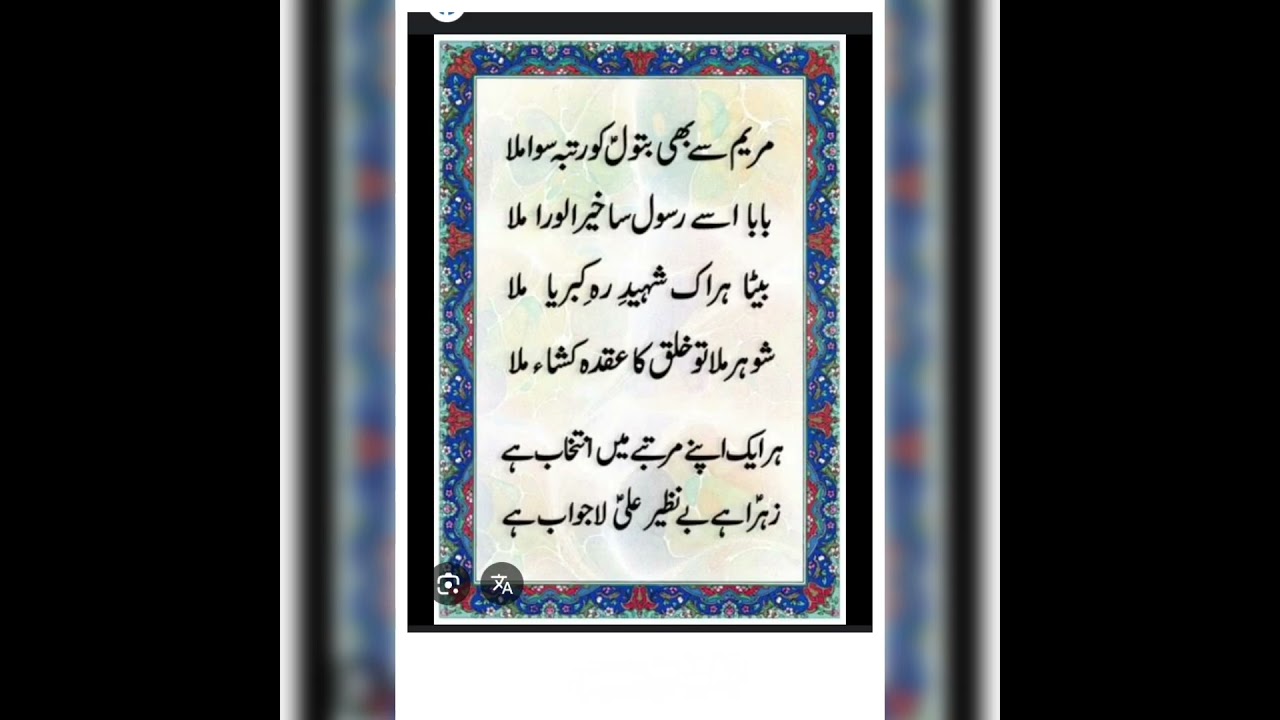 مریم سے بھی بتولؑ کو رتبہ سوا ملا
بابا اسے رسول سا خیر الورا ملا
بیٹا ہر اک شہیدِ رہِ کبریا ملا
شوہر ملا تو خلق کا عقدہ کشاء ملا
ہر ایک اپنے مرتبے میں انتخاب ہے
زہراؑ ہے بے نظیر علیؑ لاجواب ہے